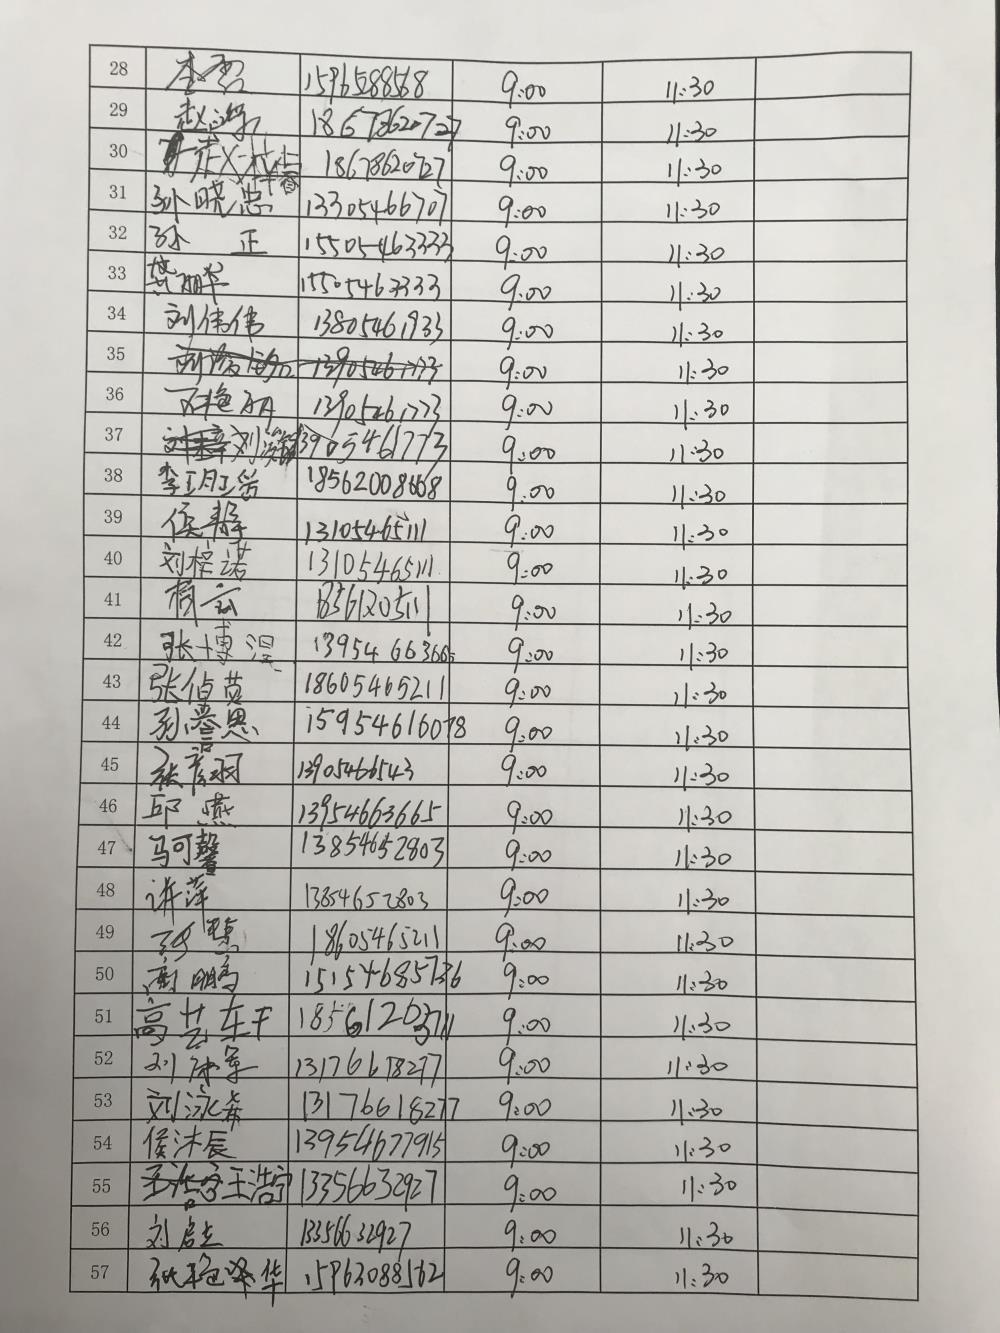 28 李 15965288568 9:00 11:30
29 赵 18678620727 9:00 11:30
30 18678620727 9:00 11:30
31 孙晓忠 13305466707 9:00 11:30
32 孙正 15505463333 9:00 11:30
33 15505463333 9:00 11:30
34 刘伟伟 13805461933 9:00 11:30
35 13905461773 9:00 11:30
36 13905461773 9:00 11:30
37 刘 13905461773 9:00 11:30
38 李 18562008668 9:00 11:30
39 侯静 13105465111 9:00 11:30
40 刘梓诺 13105465111 9:00 11:30
41 9:00 11:30
42 张博涅 13954663665 9:00 11:30
43 张伯苗 18605465211 9:00 11:30
44 孙睿思 15954616078 9:00 11:30
45 张 13905466543 9:00 11:30
46 邱燕 13954663665 9:00 11:30
47 马可馨 13854652803 9:00 11:30
48 许萍 13854652803 9:00 11:30
49 18605465211 9:00 11:30
50 鹏 15154685736 9:00 11:30
51 高 9:00 11:30
52 刘 13176618277 9:00 11:30
53 刘泳希 13176618277 9:00 11:30
54 侯沐辰 13954677915 9:00 11:30
55 王浩宁 13356632927 9:00 11:30
56 刘 13356632927 9:00 11:30
57 华 15963088562 9:00 11:30